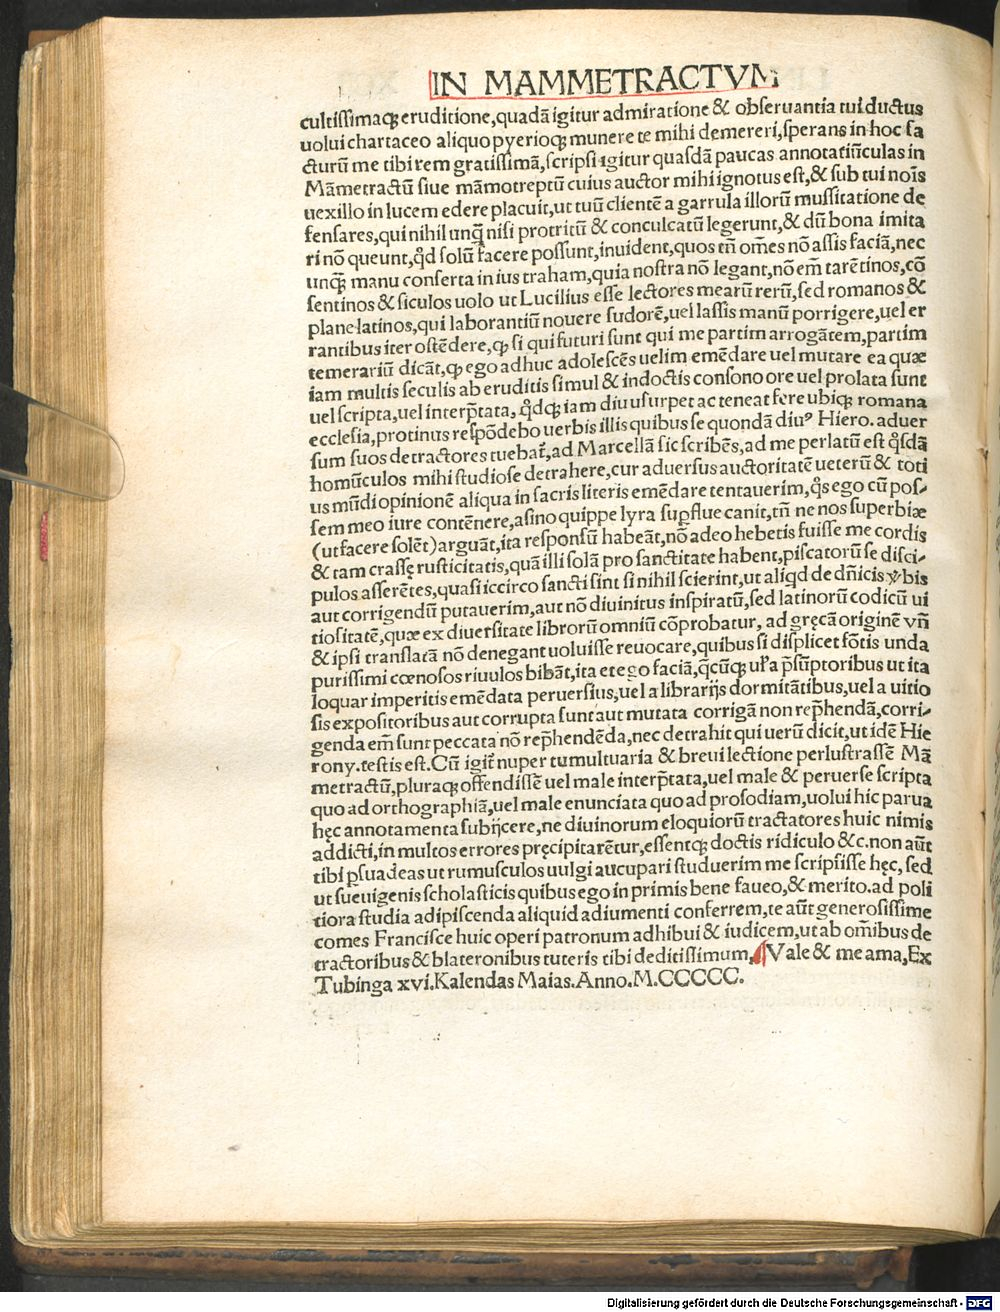 IN MAMMETRACTVM
cultissimaqȝ eruditione,quadā igitur admiratione & obseruantia tui ductus
uolui chartaceo aliquo pyerioqȝ munere te mihi demereri,sperans in hoc fa
cturū me tibi rem gratissimā,scripsi igitur quasdā paucas annotatiūculas in
Māmetractū siue māmotreptū cuius auctor mihi ignotus est,& sub tui nois̄
uexillo in lucem edere placuit,ut tuū clientē a garrula illorū mussitatione de
fensares,qui nihil unq̄ nisi protritū & conculcatū legerunt,& dū bona imita
ri nō queunt,qd̄ solū facere possunt,inuident,quos tn̄ om̄es nō assis faciā,nec
unqȝ manu conserta in ius traham,quia nostra nō legant,nō em̄ tarētinos,cō
sentinos & siculos uolo ut Lucilius esse lectores mearū rerū,sed romanos &
plane latinos,qui laborantiū nouere sudorē,uel lassis manū porrigere,uel er
rantibus iter ostēdere,qȝ si qui futuri sunt qui me partim arrogātem,partim
temerariū dicāt,qȝ ego adhuc adolescēs uelim emēdare uel mutare ea quæ
iam multis seculis ab eruditis simul & indoctis consono ore uel prolata sunt
uel scripta,uel interp̄tata, qd̄qȝ iam diu usurpet ac teneat fere ubiqȝ romana
ecclesia,protinus respōdebo uerbis illis quibus se quondā diuꝰ Hiero. aduer
sum suos detractores tuebat̄,ad Marcellā sic scribēs,ad me perlatū est qͦsdā
homūculos mihi studiose detrahere,cur aduersus auctoritatē ueterū & toti
us mūdi opinionē aliqua in sacris literis emēdare tentauerim,qͦs ego cū pos-
sem meo iure contēnere,asino quippe lyra suꝑflue canit,tn̄ ne nos superbiæ
(ut facere solēt)arguāt,ita responsū habeāt,nō adeo hebetis fuisse me cordis
& tam crassę rusticitatis,quā illi solā pro sanctitate habent,piscatorū se disci-
pulos asserētes,quasi iccirco sancti sint si nihil scierint,ut aliqd de dn̄icis v̄bis
aut corrigendū putauerim,aut nō diuinitus inspiratū,sed latinorū codicū ui
tiositatē,quæ ex diuersitate librorū omniū cōprobatur, ad gręcā originē vn̄
& ipsi translatā nō denegant uoluisse reuocare,quibus si displicet fōtis unda
purissimi cœnosos riuulos bibāt,ita et ego faciā,q̄cūqȝ ul̄a p̄sūptoribus ut ita
loquar imperitis emēdata peruersius,uel a librarijs dormitātibus,uel a uitio
sis expositoribus aut corrupta sunt aut mutata corrigā non rep̄hendā,corri-
genda em̄ sunt peccata nō rep̄hendēda,nec detrahit qui uerū dicit,ut idē Hie
rony.testis est.Cū igit̄ nuper tumultuaria & breui lectione perlustrassē Mā
metractū,pluraqȝ offendissē uel male interp̄tata,uel male & peruerse scripta
quo ad orthographiā,uel male enunciata quo ad prosodiam,uolui hic parua
hęc annotamenta subijcere,ne diuinorum eloquiorū tractatores huic nimis
addicti,in multos errores pręcipitarētur,essentqȝ doctis ridiculo &c.non aūt
tibi ꝑsuadeas ut rumusculos uulgi aucupari studuerim me scripsisse hęc, sed
ut sueuigenis scholasticis quibus ego in primis bene faueo,& merito.ad poli
tiora studia adipiscenda aliquid adiumenti conferrem,te aūt generosissime
comes Francisce huic operi patronum adhibui & iudicem,ut ab om̄ibus de
tractoribus & blateronibus tuteris tibi deditissimum, Vale & me ama,Ex
Tubinga xvi.Kalendas Maias.Anno.M.CCCCC.
Digitalisierung gefördert durch die Deutsche Forschungsgemeinschaft - DFG